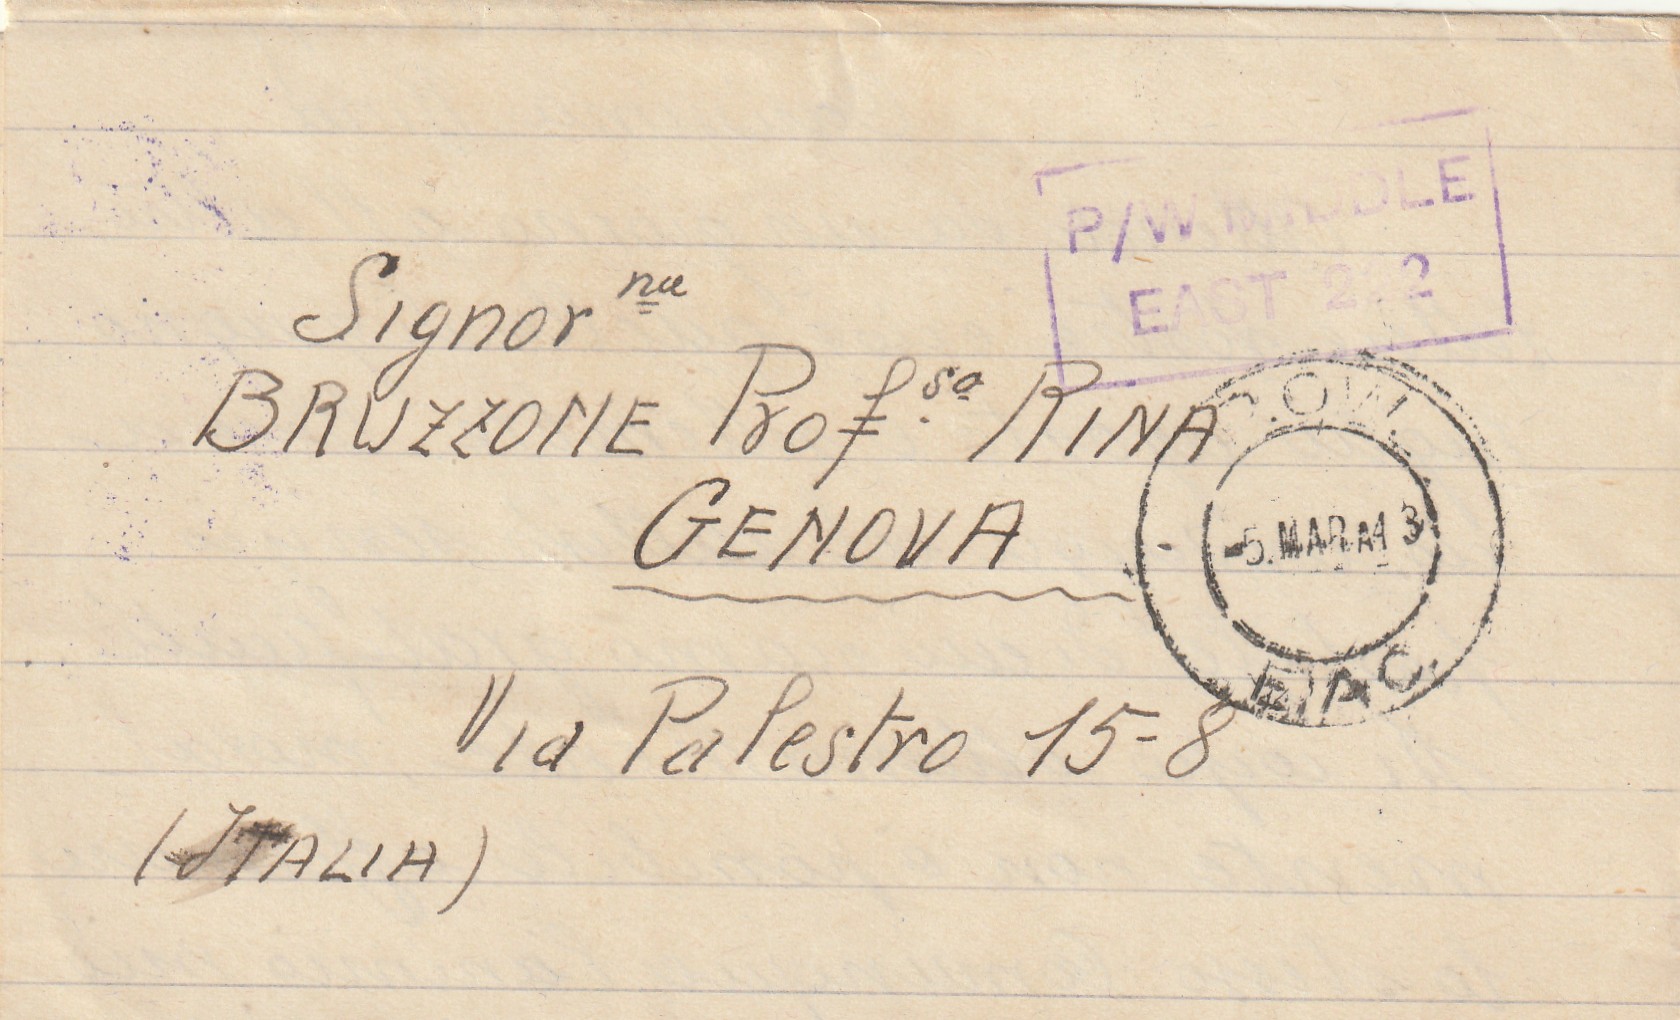 P/W MIDDLE
EAST 2 2
Signor na
BRUZZONE Prof.sa RINA
GENOVA
Via Palestro 15-8
(ITALIA)
P.O.W.
-5.MAR.
E.A.C.